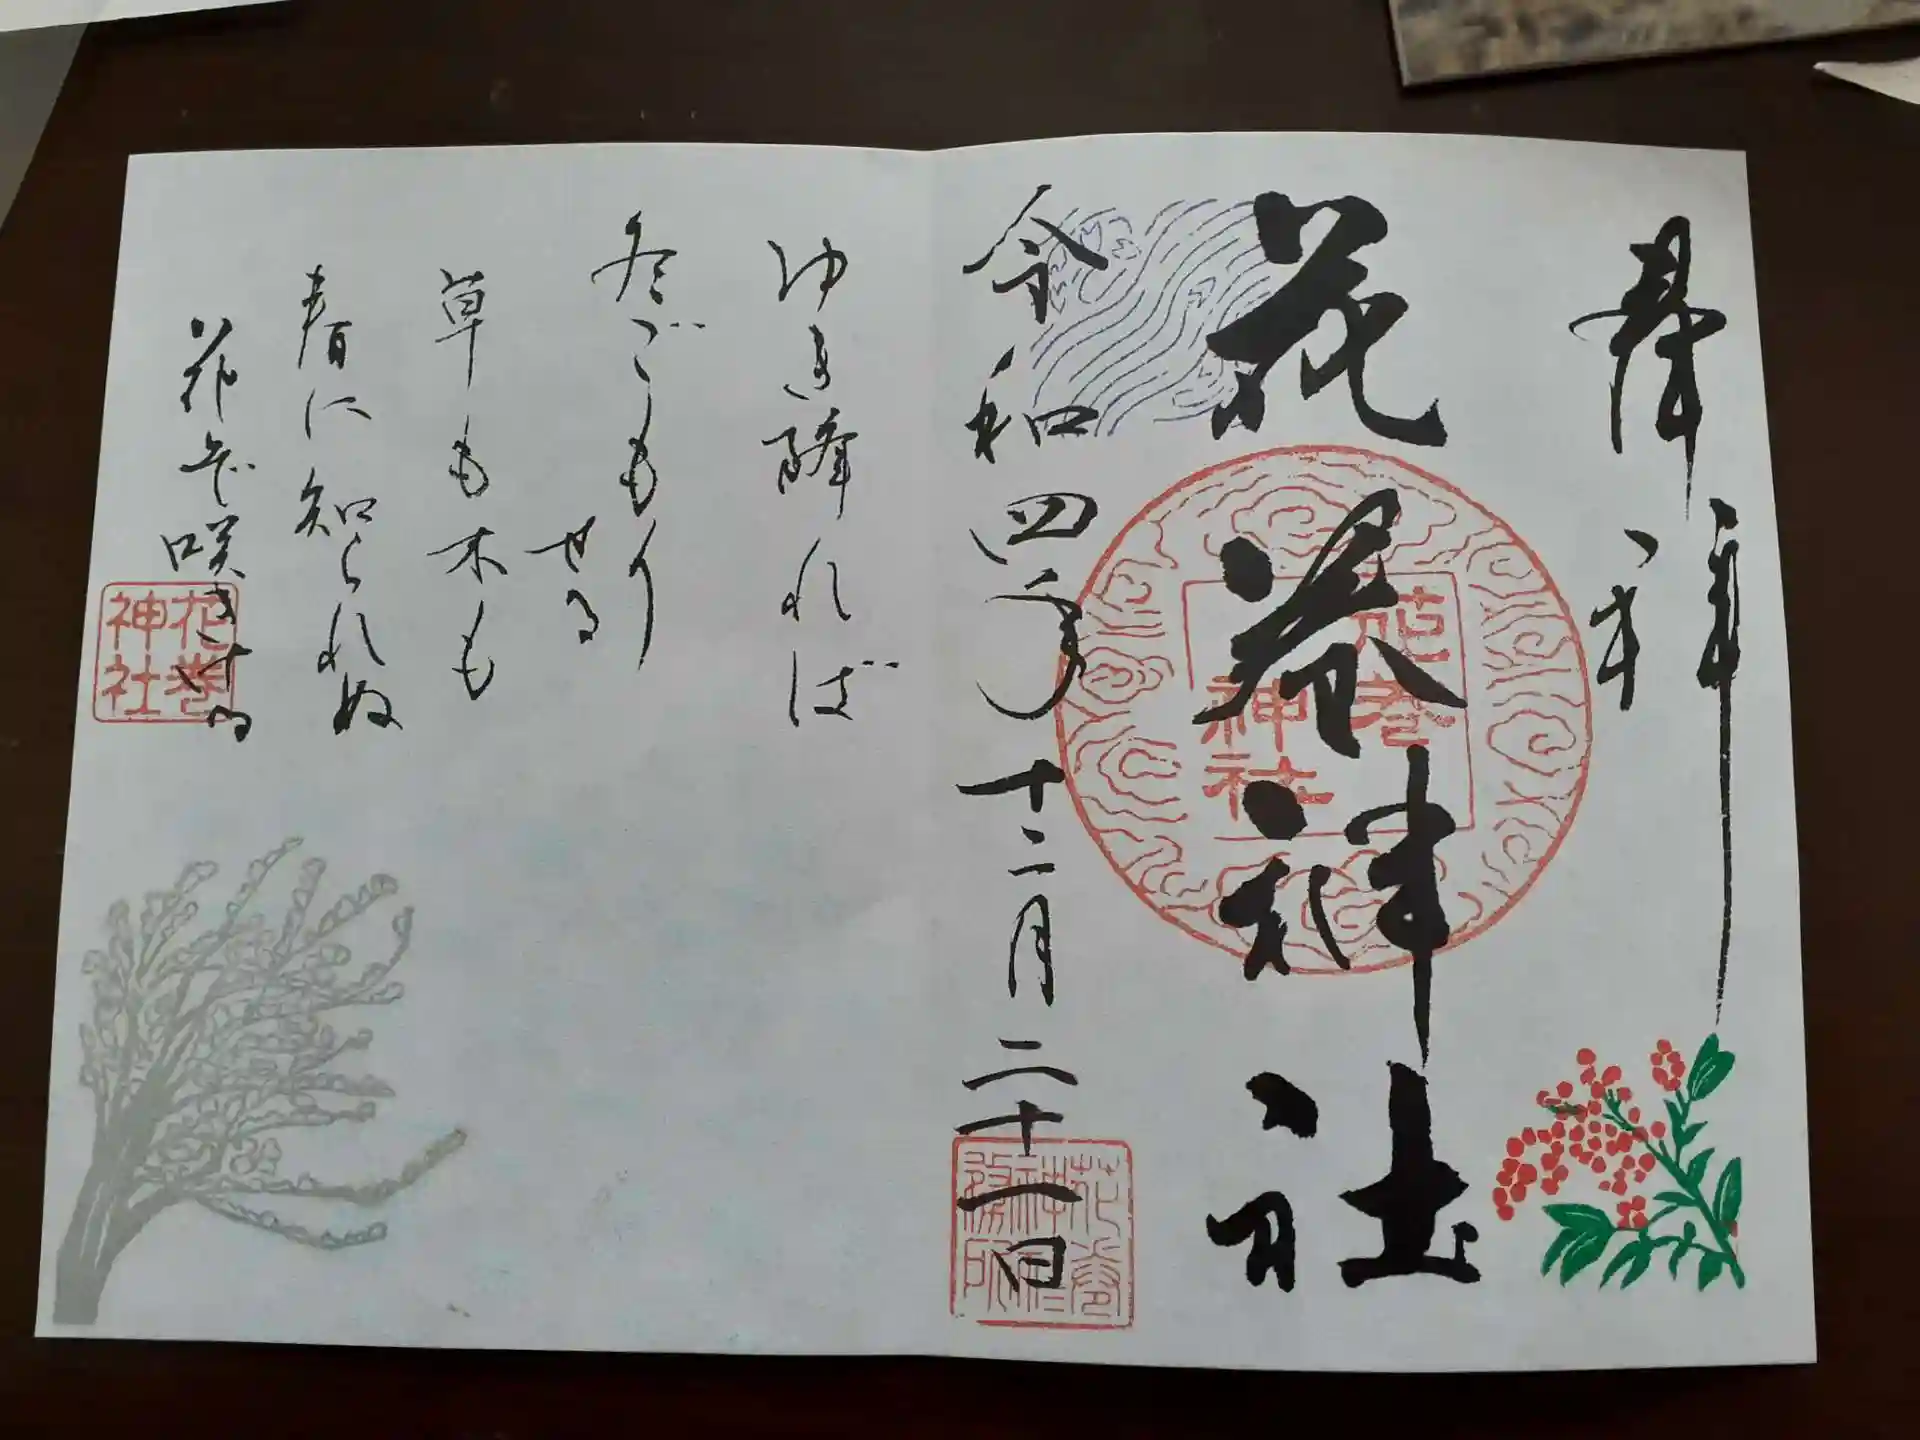 奉拝
花巻神社
令和四年十二月二十一日
花巻
神社
花巻
神社
社務所
ゆき降れば
冬ごもり
せる
草も木も
春に知られぬ
花ぞ咲きける
花巻
神社